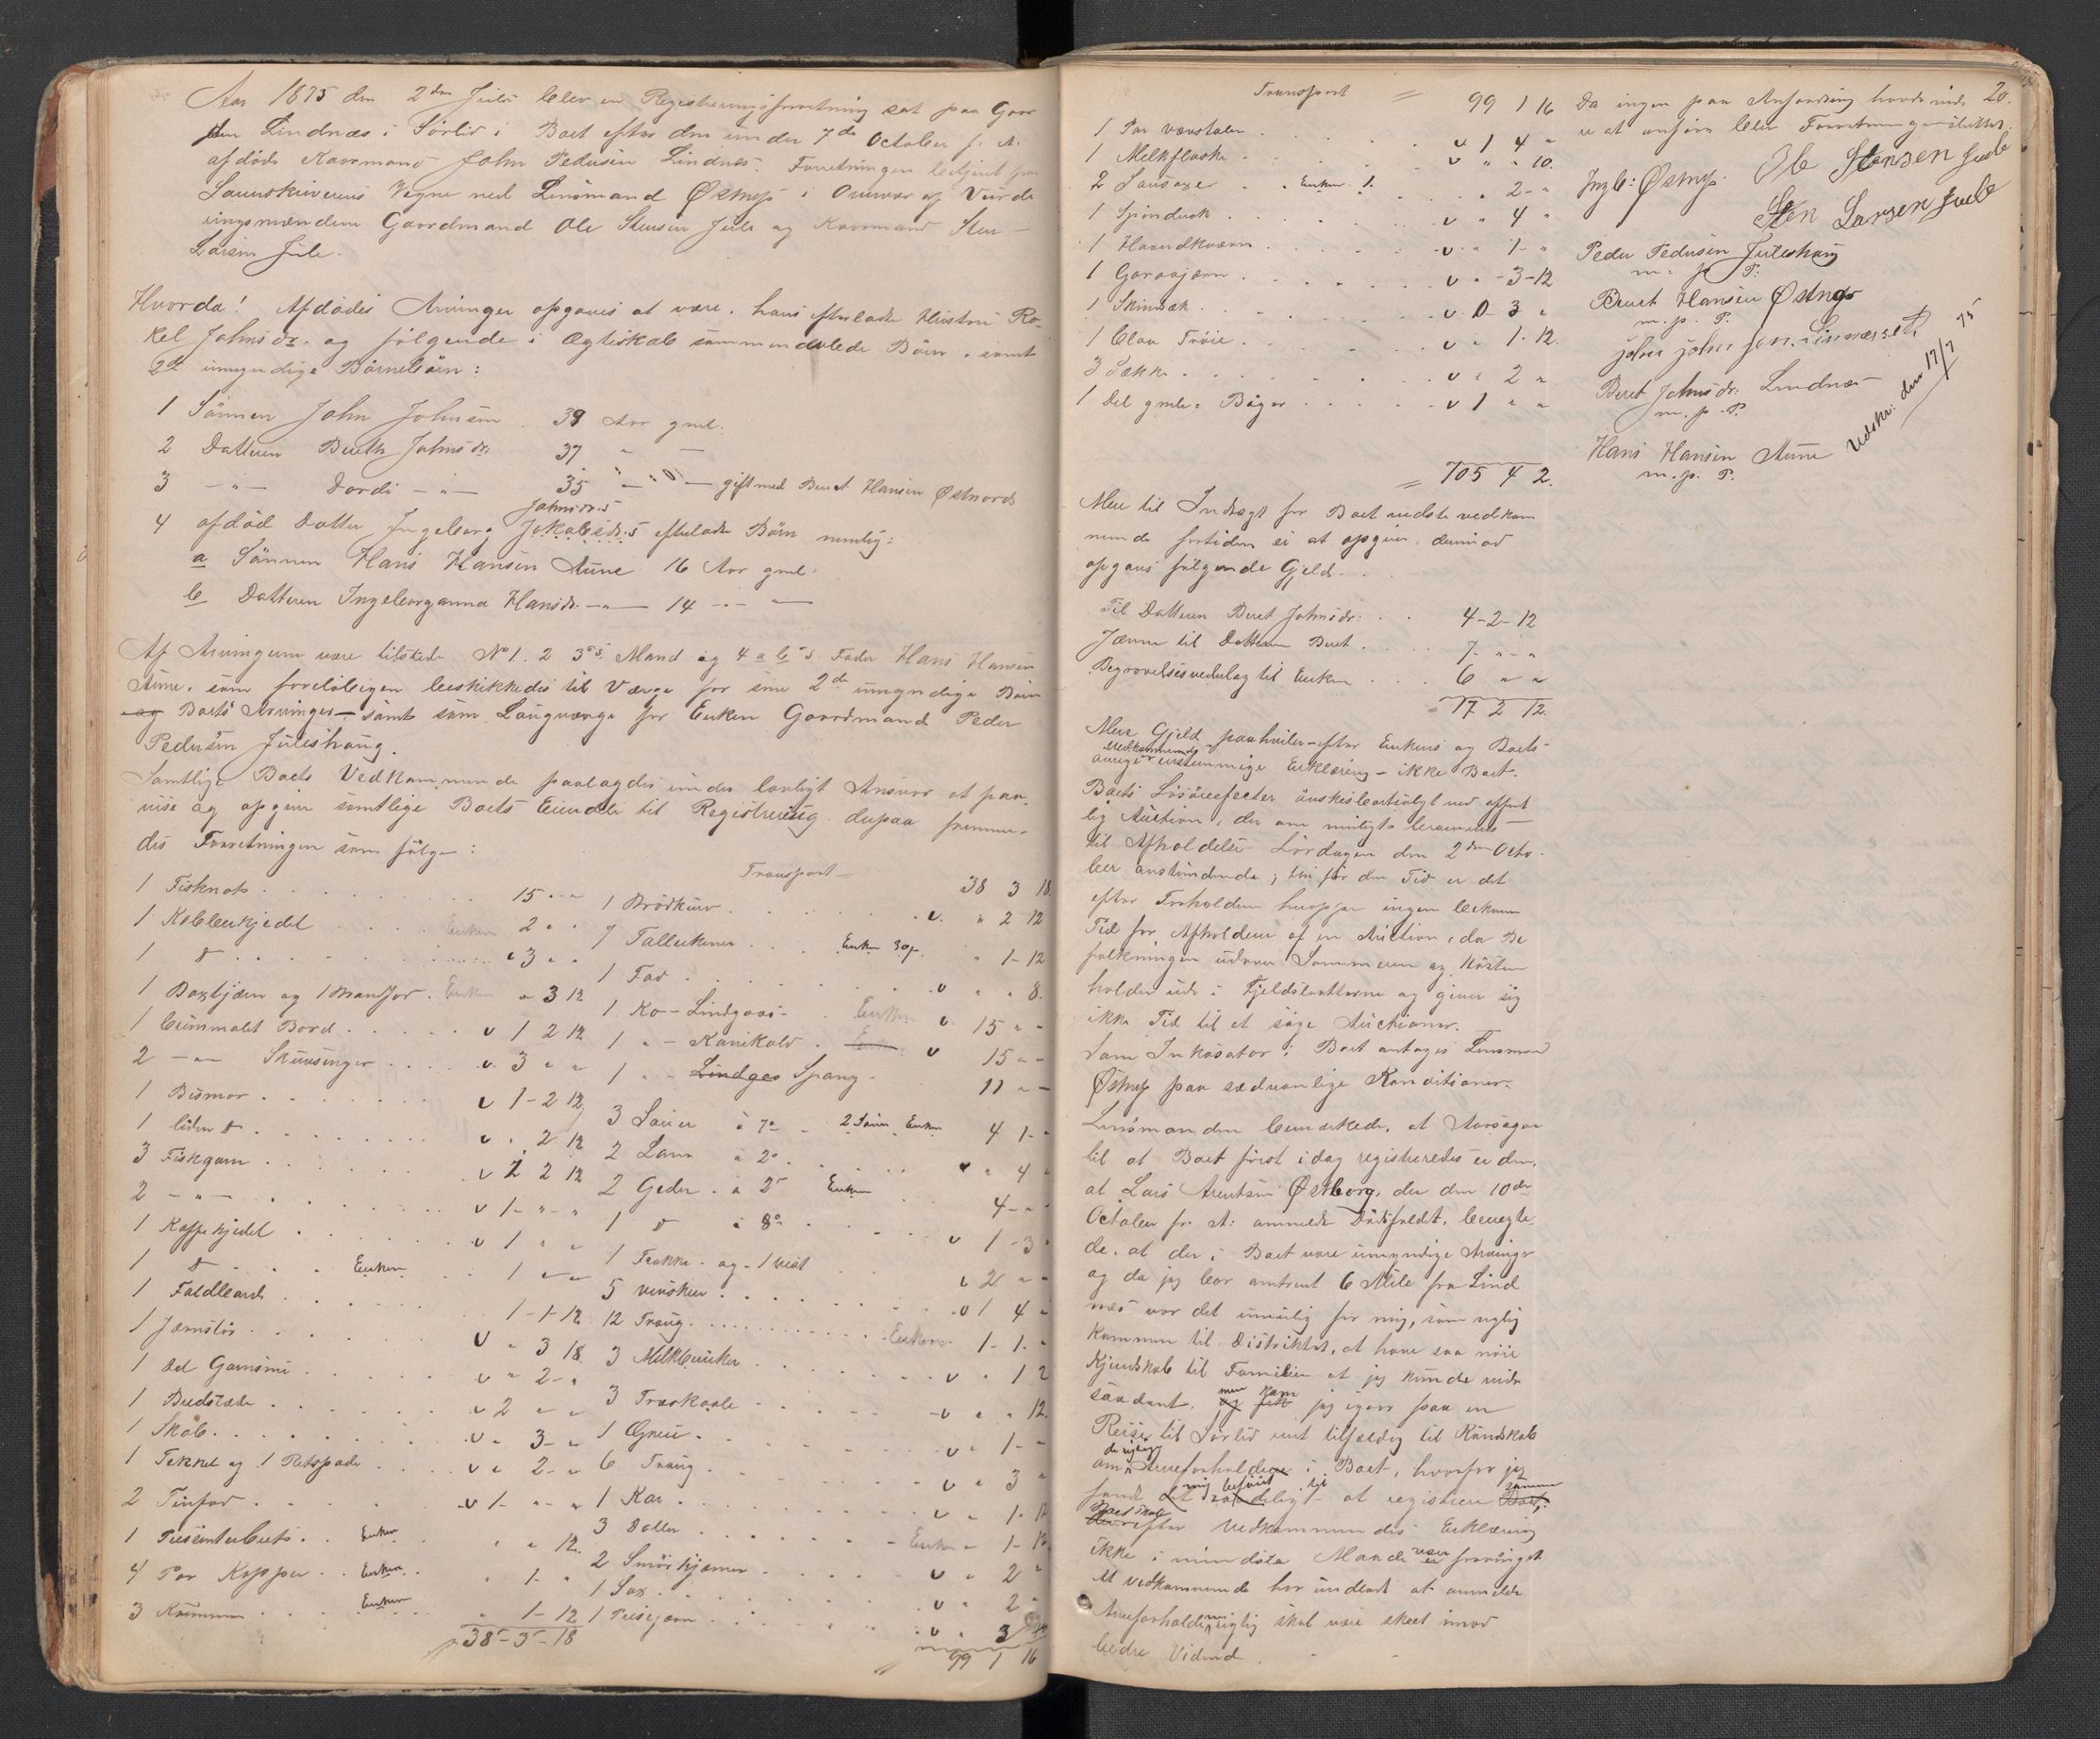 Aar 1875 den 2den Juli blev en Registreringsforretning sat paa Gaar
den Lindnæs i Sörlid i Boet efter den under 7de October f. A.
afdöde Kaarmand John Pedersen Lindnæs. Forretningen betjent paa
Sorenskriverens Vegne ved Lensmand Østnes i Overvær af Vurde
ringsmændene Gaardmand Ole Stensen Jule og Kaarmand Sten
Larsen Jule.
Hvorda! Afdödes Arvinger opgaves at være, hans efterladte Hustru Ra-
kel Johnsdr. og følgende i Ægteskab sammenavlede Børn, samt
2de umyndige Börnebörn:
1 Sönnen John Johnsen 39 Aar gml.
2 Datteren Berith Johnsdr. 37 " —
3 —"— Dordi —"— 35 — " — gift med Bernt Hansen Østnord
4 afdöd Datter Ingeborg Johnsdr.s Jakobsdr.s efterladte Börn nemlig:
a Sönnen Hans Hansen Aune 16 Aar gml.
b Datteren Ingeborganna Hansdr. —"— 14 — " —
Af Arvingerne vare tilstede No 1. 2 3's Mand og 4 a b's Fader Hans Hansen
Aune, som forelöbigen beskikkedes til Værge for sine 2de umyndige Börn
og Boets Arvinger — samt som Laugværge for Enken Gaardmand Peder
Pedersen Juleshaug.
Samtlige Boets Vedkommende paalagdes under lovligt Ansvar at paa-
vise og opgive samtlige Boets Eiendele til Registrering. derpaa fremme-
des Forretningen som følger:
1 Fisknot 15 " "
1 Kobberkjedel Enken 2 " "
1 do " 3 " "
1 Baxtjærn og 1 Brandjor. Enken " 3 12
1 Gummalt Bord v 1 2 12
2 —"— Skuvsenger v. 3 " "
1 Bismor v 1-2 12
1 liden do v " 2 12
3 Fiskgarn v 2 2 12
2 — " — v 1 - " - "
1 Kaffekjedel v 1 " "
1 do Enken 1 " "
1 Foldbord 1-1-12
1 Jærnstör v " 3 18
1 Del Garnsnu v " 2 - "
1 Budstæde v 2 " "
1 Skab v " 3 - "
1 Tekkel og 1 Retspade v " 2 - "
2 Tinfad v 1 - " - "
1 Enken " " 12
4 Par Kopper Enken " 1 - "
3 Enken " 1-12
38-3-18
Transport — 38 3 18
1 Brödkurv v. " 2 12
7 Tallerkener Enken 30/- " 1-12
1 Fad v " " 8
1 Ko - Lindgaas - Enken v 15 " "
1 " - Kanikolv . Enken v 15 " "
1 " - Lindgas Spang - 11 " -
3 Sauer à 7- 2 Sauer Enken 4 1 - "
2 Lam à 2- v " 4 "
2 Geder à 2- Enken 4 - "
1 do à 8- v 1-3 "
1 Trekke og 1 v 2 " "
5 v 1 4 "
12 Traug Enken 1-1 "
3 Melkbunker v " 1 2
3 Træskaale v " " 12
1 Öxnu v " 1 - "
6 Traug v " 3 "
1 Kar v " 1 - 12
3 Boller Enken " 1-12
2 Smörkjærner v " 2 "
1 Sax v " 2 "
1 Presejern v " 3
99 1 16
Transport = 99 1 16
1 Par Vævstoler v 1 4 "
1 Melkflaske v " " 10
2 Sauesaxe Enken 1. " 2 - "
1 Spinderok v " 4 "
1 Haandkværn v " 1 - "
1 Goroojærn v " - 3-12
1 Skindsæk v 0 - 3 "
1 Blaa Tröie v " 1-12
3 Sække v " 2 "
1 Del gmle Böger v 1 " "
= 105 4 2.
Mere til Indtægt for Boet vidste vedkom
mende fortiden ei at opgive, derimod
opgaves følgende Gjeld.
Til Datteren Beret Johnsdr: 4-2-12
Jærne til Datteren Beret 7 - " - "
Begravelsesvederlag til Enken 6 " "
= 17 2 12.
Mere Gjeld paahviler - efter Enkens og Boets
övrige Vedkommendes enstemmige Erklæring - ikke Boet.
Boets Lösöreefecter önskes bortsolgt ved offent
lig Auction, der om muligt berammes
til Afholdelse Lördagen den 2den Octo-
ber anstundende; thi för den Tid er det
efter Forholdene heroppe ingen bekvem
Tid for Afholdelse af en Auction, da Be
folkningen udover Sommeren og Hösten
holder ude i Fjeldslaatterne og giver sig
ikke Tid til at söge Auctioner.
Som Inkasator i Boet antoges Lensmand
Østnes paa sædvanlige Konditioner.
Lensmanden bemærkede, at Aarsagen
til at Boet først idag registreredes er den,
at Lars Arentsen Østborg, der den 10de
October f. A: anmeldte Dödsfaldet, benegte-
de, at der i Boet vare umyndige Arvinger
og da jeg bor omtrent 6 Mile fra Lind
næs var det umulig for mig, som nylig
kommen til Distriktet, at have saa nöie
Kjendskab til Familien at jeg kunde vide
saadant, og fik men kom jeg igaar paa en
Reise til Sörlid rent tilfældig til Kundskab
om de rigtige Arveforholdene i Boet, hvorfor jeg
fandt det raadeligt mig beföiet til at registrere Boet, samme
Boet skal derefter Vedkommendes Erklæring
ikke i mindste Maade være er forringet
At vedkommende har undladt at anmelde
Arveforholdene rigtig skal være skeet imod
bedre Vidende.
20.
Da ingen paa Anfordring havde vide
re at anføre blev Forretningen sluttet.
Ingb: Østnes. Ole Stensen Jule
Sten Larsen Juele
Peder Pedersen Juleshaug
m. p. P.
Bernt Hansen Østnor
m. p. P.
john johnsen Linnæset
Beret Johnsdr. Lindnæs
m. p. P.
Hans Hansen Aune
m. p. P.
Udskr: den 17/7 75